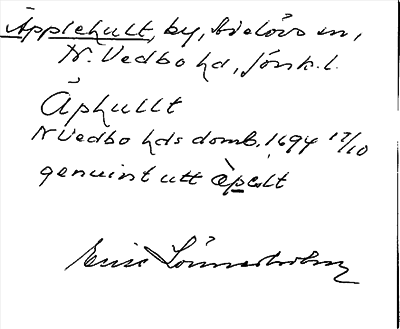 Äpplehult, by, Bielövs sn,
N. Vedbo hd, Jönk. l.
Äphullt
N Vedbo hds domb. 1694 17/10
genuint utt äpelt
Eric Lönnerholm